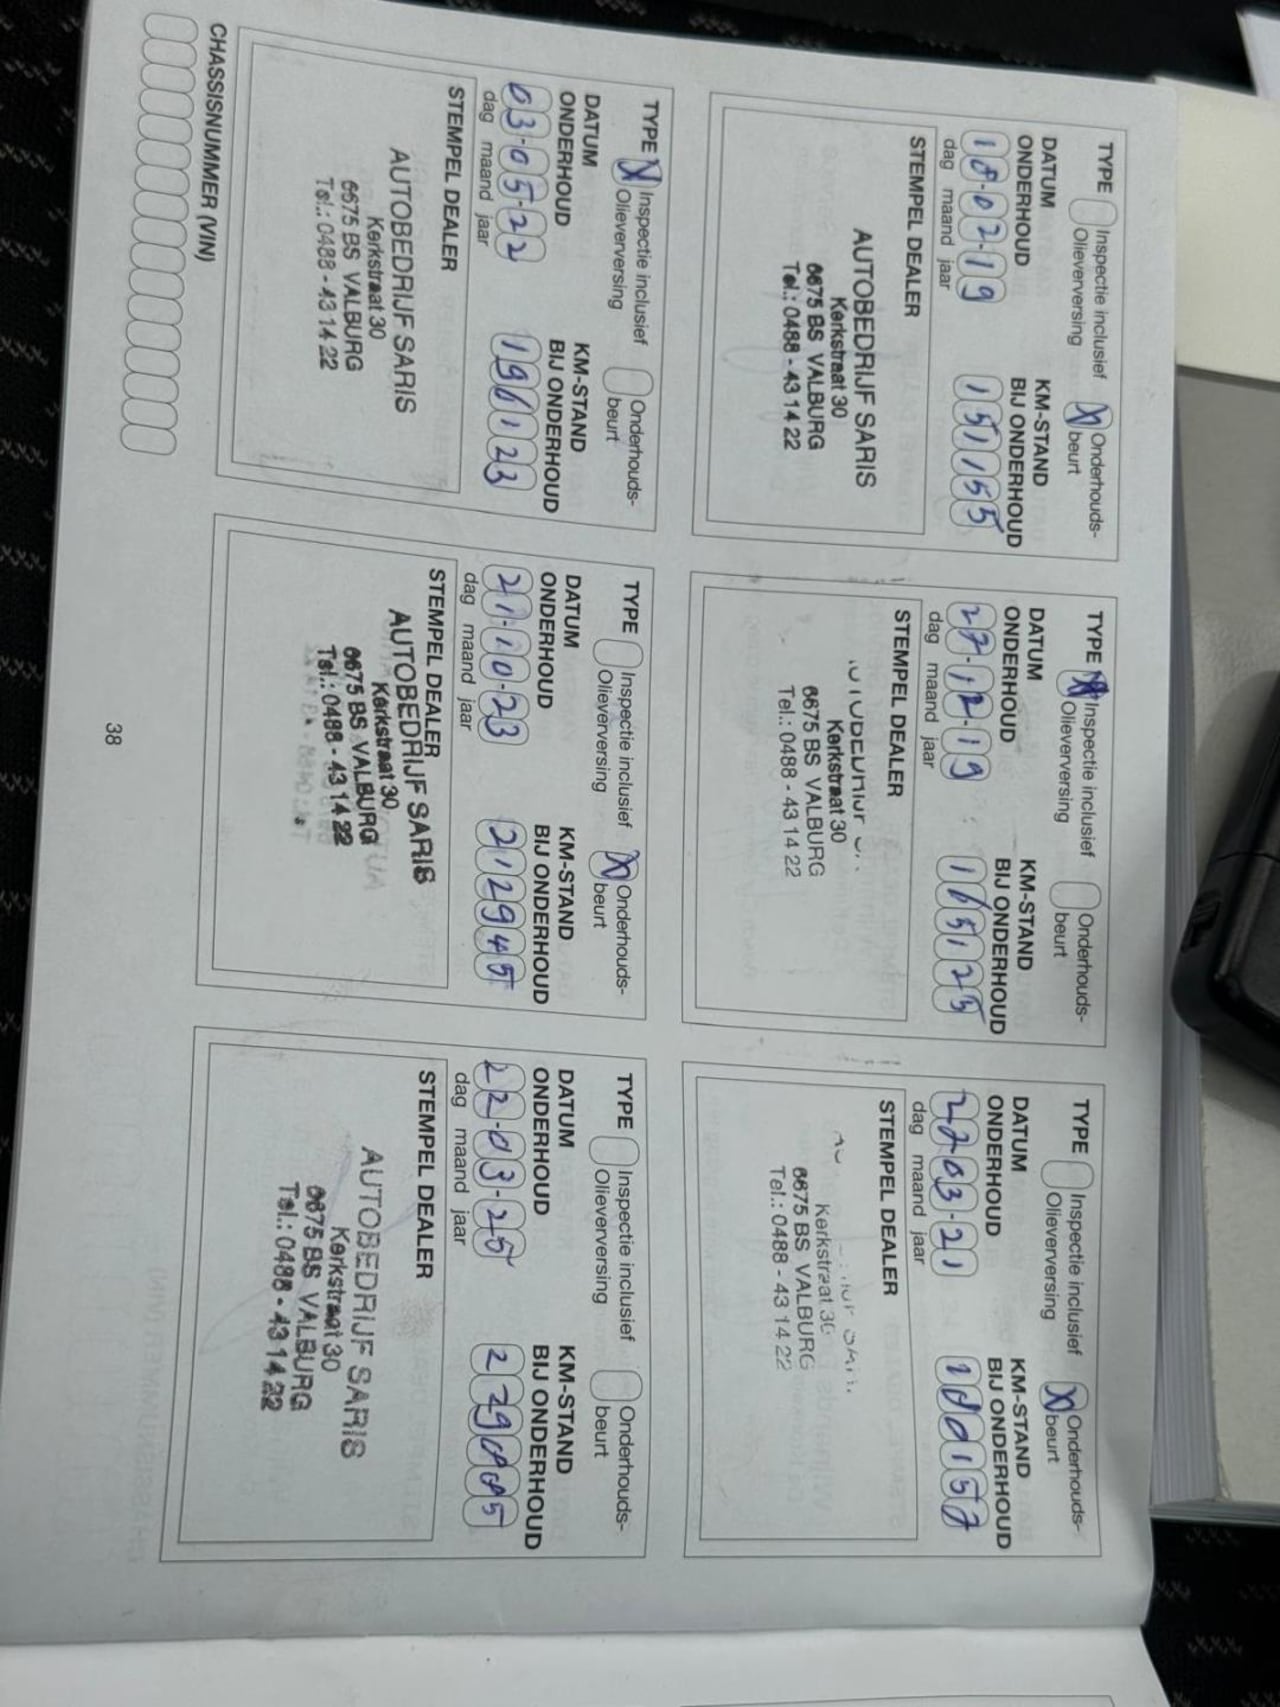 TYPE Inspectie inclusief Olieverversing X Onderhouds-beurt
DATUM ONDERHOUD
KM-STAND BIJ ONDERHOUD
18-02-19 151155
dag maand jaar
STEMPEL DEALER
AUTOBEDRIJF SARIS
Kerkstraat 30
6675 BS VALBURG
Tel.: 0488 - 43 14 22
TYPE X Inspectie inclusief Olieverversing Onderhouds-beurt
DATUM ONDERHOUD
KM-STAND BIJ ONDERHOUD
27-12-19 165125
dag maand jaar
STEMPEL DEALER
Kerkstraat 30
6675 BS VALBURG
Tel.: 0488 - 43 14 22
TYPE Inspectie inclusief Olieverversing X Onderhouds-beurt
DATUM ONDERHOUD
KM-STAND BIJ ONDERHOUD
dag maand jaar
STEMPEL DEALER
Kerkstraat 30
6675 BS VALBURG
Tel.: 0488 - 43 14 22
TYPE X Inspectie inclusief Olieverversing Onderhouds-beurt
DATUM ONDERHOUD
KM-STAND BIJ ONDERHOUD
03-05-22 196123
dag maand jaar
STEMPEL DEALER
AUTOBEDRIJF SARIS
Kerkstraat 30
6675 BS VALBURG
Tel.: 0488 - 43 14 22
TYPE Inspectie inclusief Olieverversing X Onderhouds-beurt
DATUM ONDERHOUD
KM-STAND BIJ ONDERHOUD
21-10-23 212945
dag maand jaar
STEMPEL DEALER
AUTOBEDRIJF SARIS
Kerkstraat 30
6675 BS VALBURG
Tel.: 0488 - 43 14 22
TYPE Inspectie inclusief Olieverversing Onderhouds-beurt
DATUM ONDERHOUD
KM-STAND BIJ ONDERHOUD
22-03-25
dag maand jaar
STEMPEL DEALER
AUTOBEDRIJF SARIS
Kerkstraat 30
6675 BS VALBURG
Tel.: 0488 - 43 14 22
CHASSISNUMMER (VIN)
38